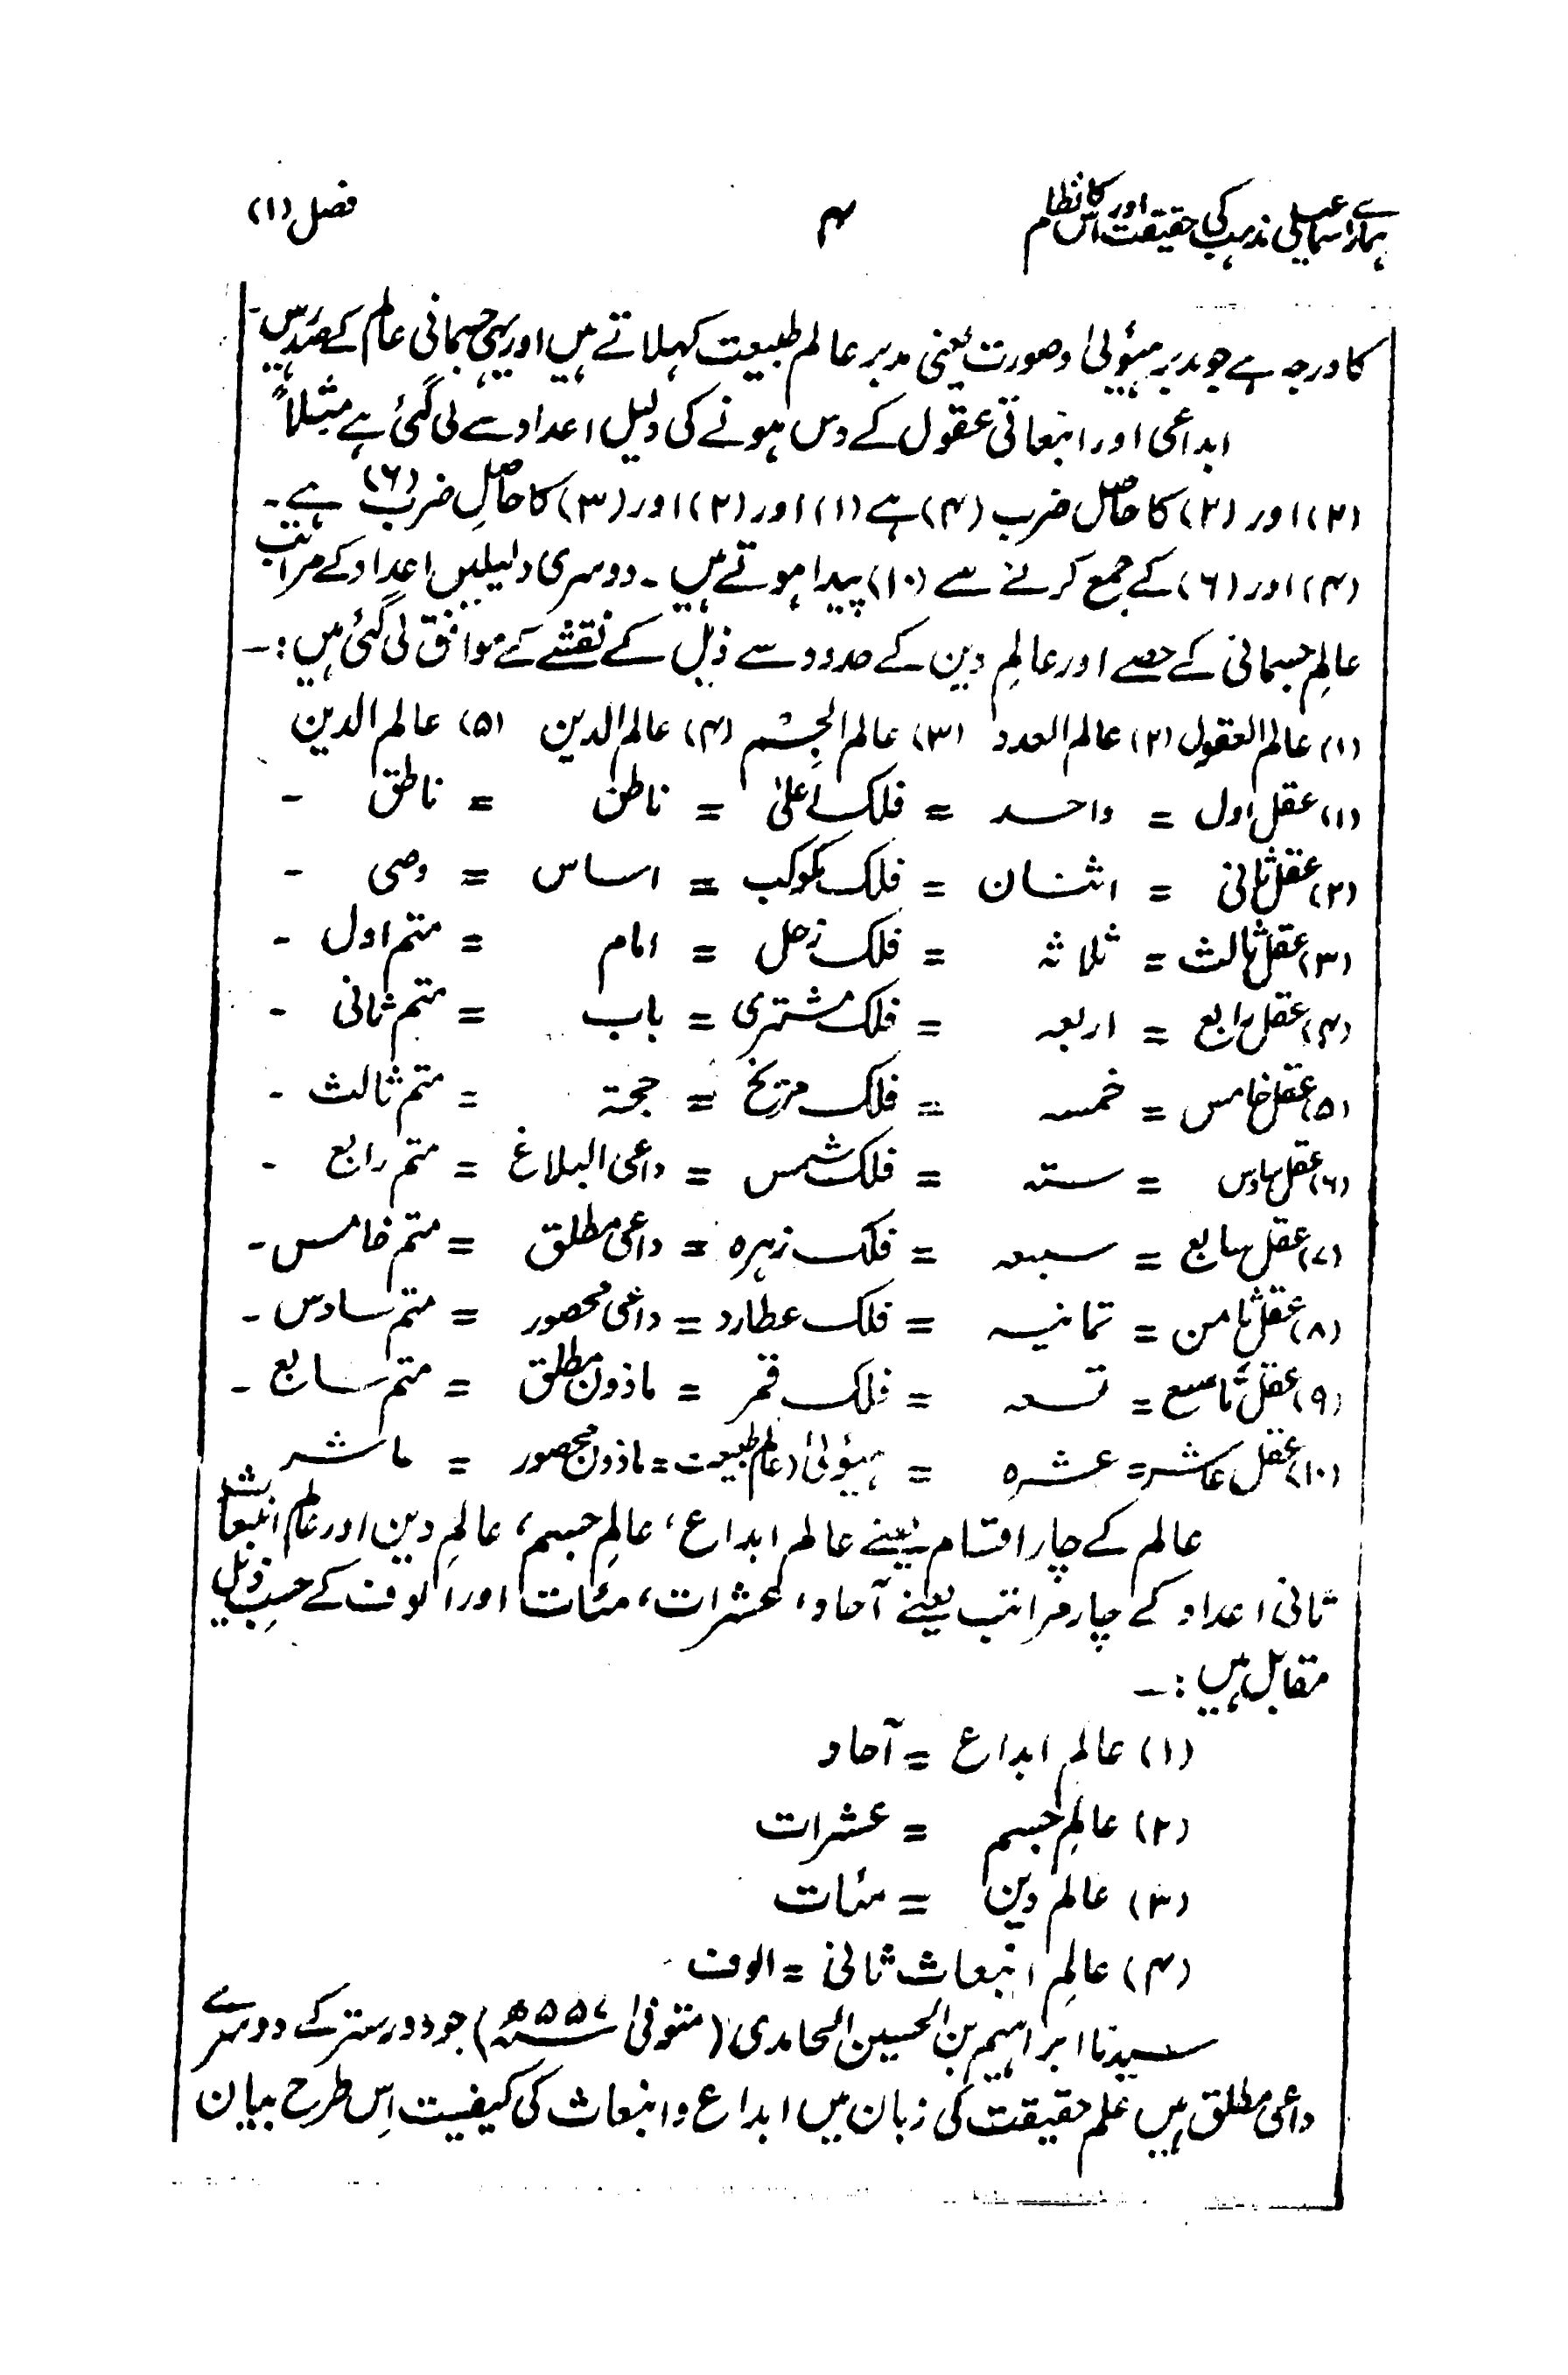 ہمارے اسماعیلی مذہب کی حقیقت اور اس کا نظام ۴ فصل (۱)
کا درجہ ہے جو مدبر ہیولیٰ و صورت یعنی مدبر عالم طبیعت کہلاتے ہیں اور یہی جسمانی عالم کے مدبر ہیں۔
ابداعی اور انبعاثی عقول کے دس ہونے کی دلیل اعداد سے لی گئی ہے مثلاً
(۲) اور (۲) کا حاصل ضرب (۴) ہے (۱) اور (۲) اور (۳) کا حاصلِ ضرب (۶) ہے۔
(۴) اور (۶) کے جمع کرنے سے (۱۰) پیدا ہوتے ہیں۔ دوسری دلیلیں اعداد کے مراتب
عالمِ جسمانی کے حصے اور عالمِ دین کے حدود سے ذیل کے نقشے کے موافق لی گئی ہیں:۔
(۱) عالم العقول (۲) عالم العدد (۳) عالم الجسم (۴) عالم الدین (۵) عالم الدین
(۱) عقل اول = واحد = فلک اعلیٰ = ناطق = ناطق ۔
(۲) عقل ثانی = اثنان = فلک مکوکب = اساس = وصی ۔
(۳) عقل ثالث = ثلاثہ = فلک زحل = امام = متم اول ۔
(۴) عقل رابع = اربعہ = فلک مشتری = باب = متم ثانی ۔
(۵) عقل خامس = خمسہ = فلک مریخ = حجتہ = متم ثالث ۔
(۶) عقل سادس = ستہ = فلک شمس = داعی البلاغ = متم رابع ۔
(۷) عقل سابع = سبعہ = فلک زہرہ = داعی مطلق = متم خامس ۔
(۸) عقل ثامن = ثمانیہ = فلک عطارد = داعی محصور = متم سادس ۔
(۹) عقل تاسع = تسعہ = فلک قمر = ماذون مطلق = متم سابع ۔
(۱۰) عقل عاشر = عشرہ = ہیولیٰ (عالم طبیعت = ماذون محصور = عاشر
عالم کے چار اقسام یعنے عالم ابداع، عالمِ جسم، عالمِ دین اور عالم انبعاث
ثانی اعداد کے چار مراتب یعنے آحاد، عشرات، مئات اور الوف کے حسبِ ذیل
مقابل ہیں:۔
(۱) عالم ابداع = آحاد
(۲) عالمِ جسم = عشرات
(۳) عالم دین = مئات
(۴) عالمِ انبعاث ثانی = الوف
سیدنا ابراہیم بن الحسین الحامدی (متوفیٰ ۵۵۷ھ) جو دور ستر کے دوسرے
داعی مطلق ہیں علم حقیقت کی زبان میں ابداع و انبعاث کی کیفیت اِس طرح بیان